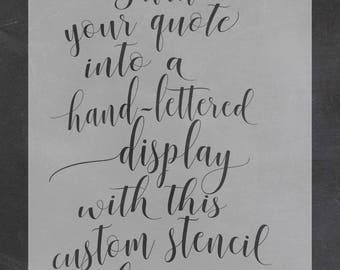 your quote
into a
hand-lettered
display
with this
custom stencil